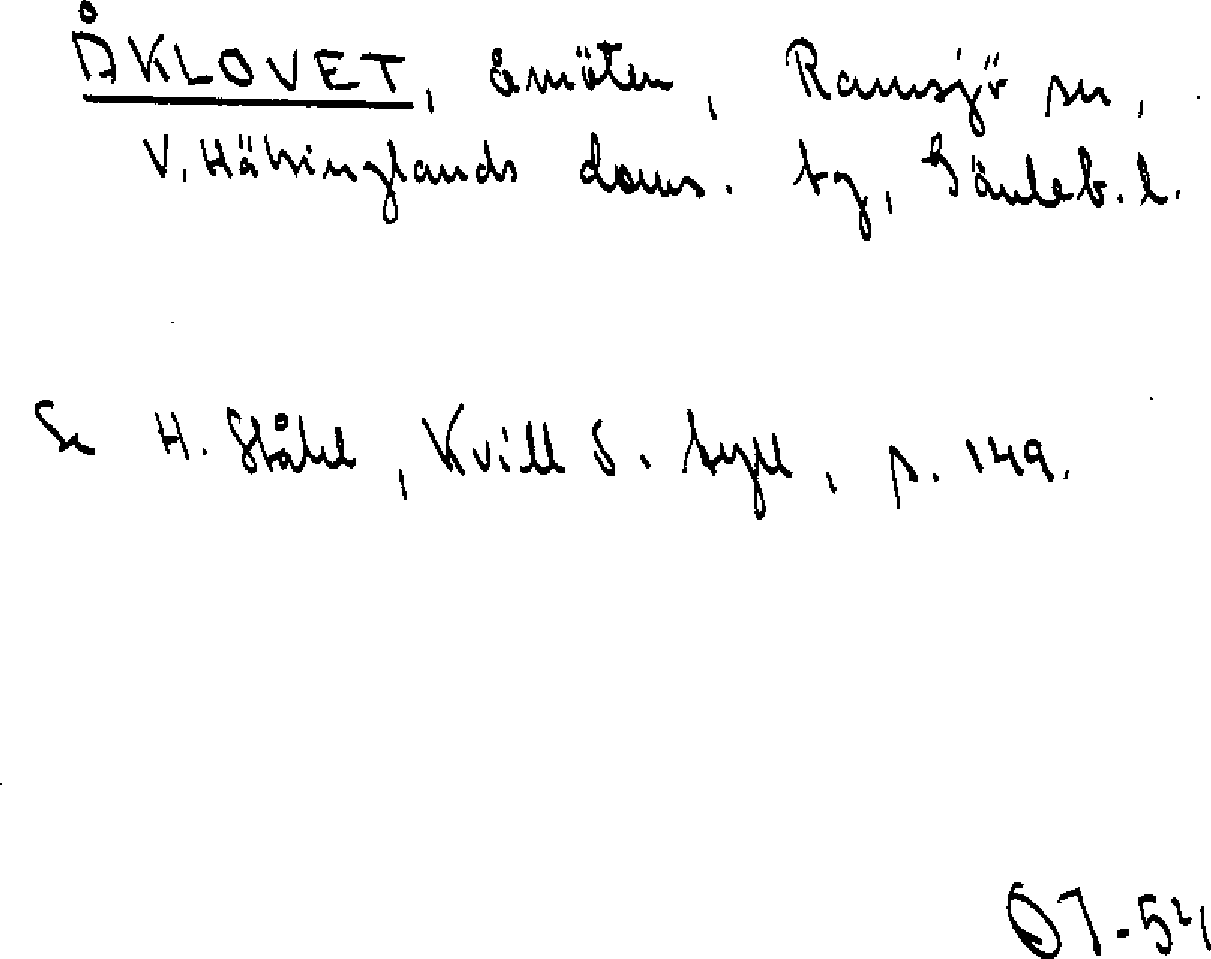 ÅKLOVET, åmöten, Ramsjö sn,
V. Hälsinglands doms. tg, Gävleb. l.
Se H. Ståhl, Kvill o. tyll, s. 149.
ÖJ-54